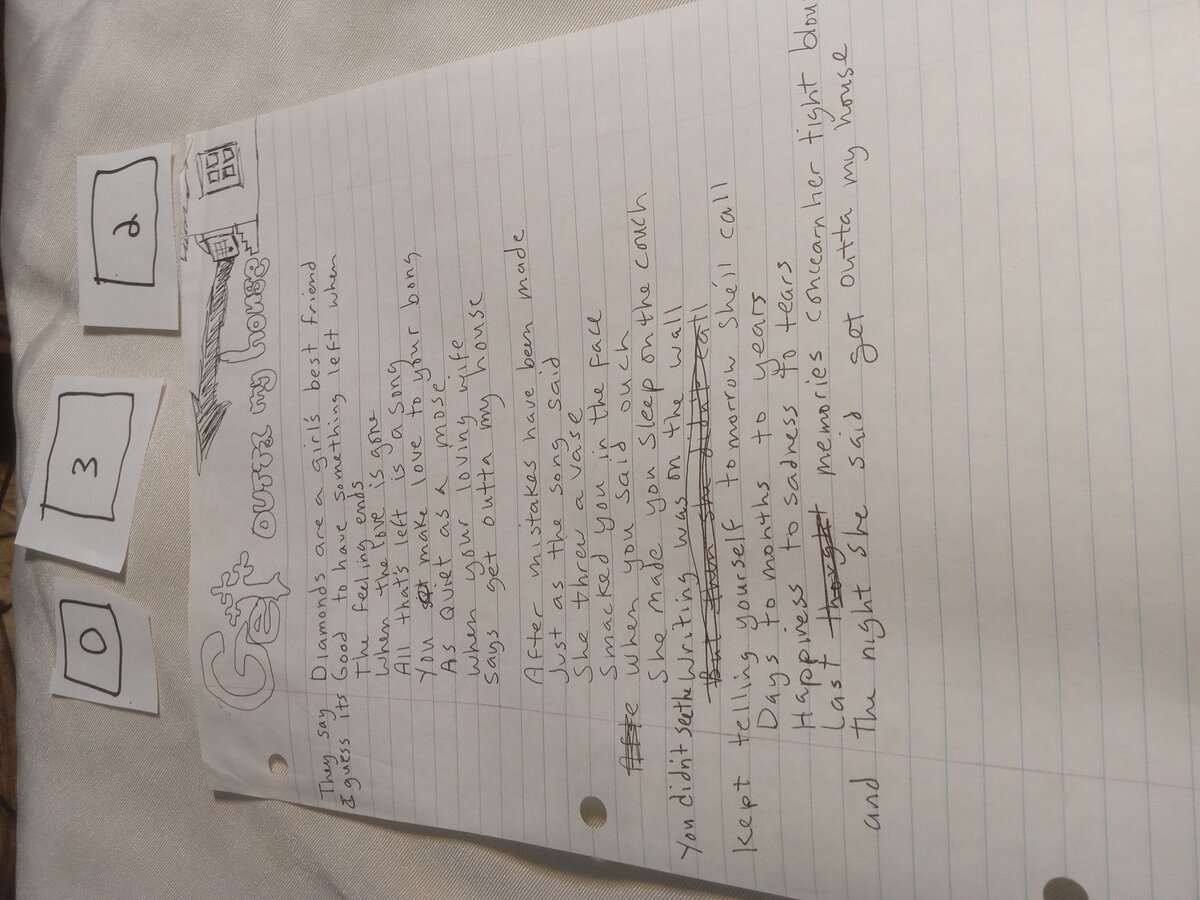 0 3 2
Get outta my house
They say Diamonds are a girl's best friend
I guess its Good to have something left when
The feeling ends
When the love is gone
All that's left is a song
You make love to your bong
As Quiet as a mose
When your loving wife
Says get outta my house
After mistakes have been made
Just as the song said
She threw a vase
Smacked you in the face
When you said ouch
She made you sleep on the couch
You didn't see the Writing was on the wall
But then she didn't call
Kept telling yourself tomorrow she'll call
Days to months to years
Happiness to sadness to tears
Last thought memories concearn her tight blou
and the night she said get outta my house